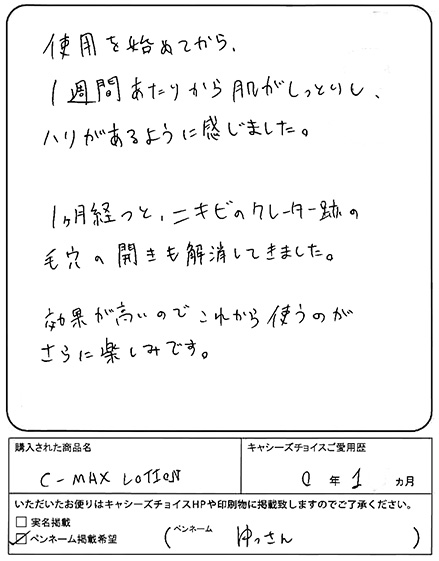 使用を始めてから、
1週間あたりから肌がしっとりし、
ハリがあるように感じました。
1ヶ月経つと、ニキビのクレーター跡の
毛穴の開きも解消してきました。
効果が高いのでこれから使うのが
さらに楽しみです。
購入された商品名
キャシーズチョイスご愛用歴
C-MAX LOTION
0 年 1 カ月
いただいたお便りはキャシーズチョイスHPや印刷物に掲載致しますのでご了承ください。
□ 実名掲載
☑ ペンネーム掲載希望 (ペンネーム ゆっさん )